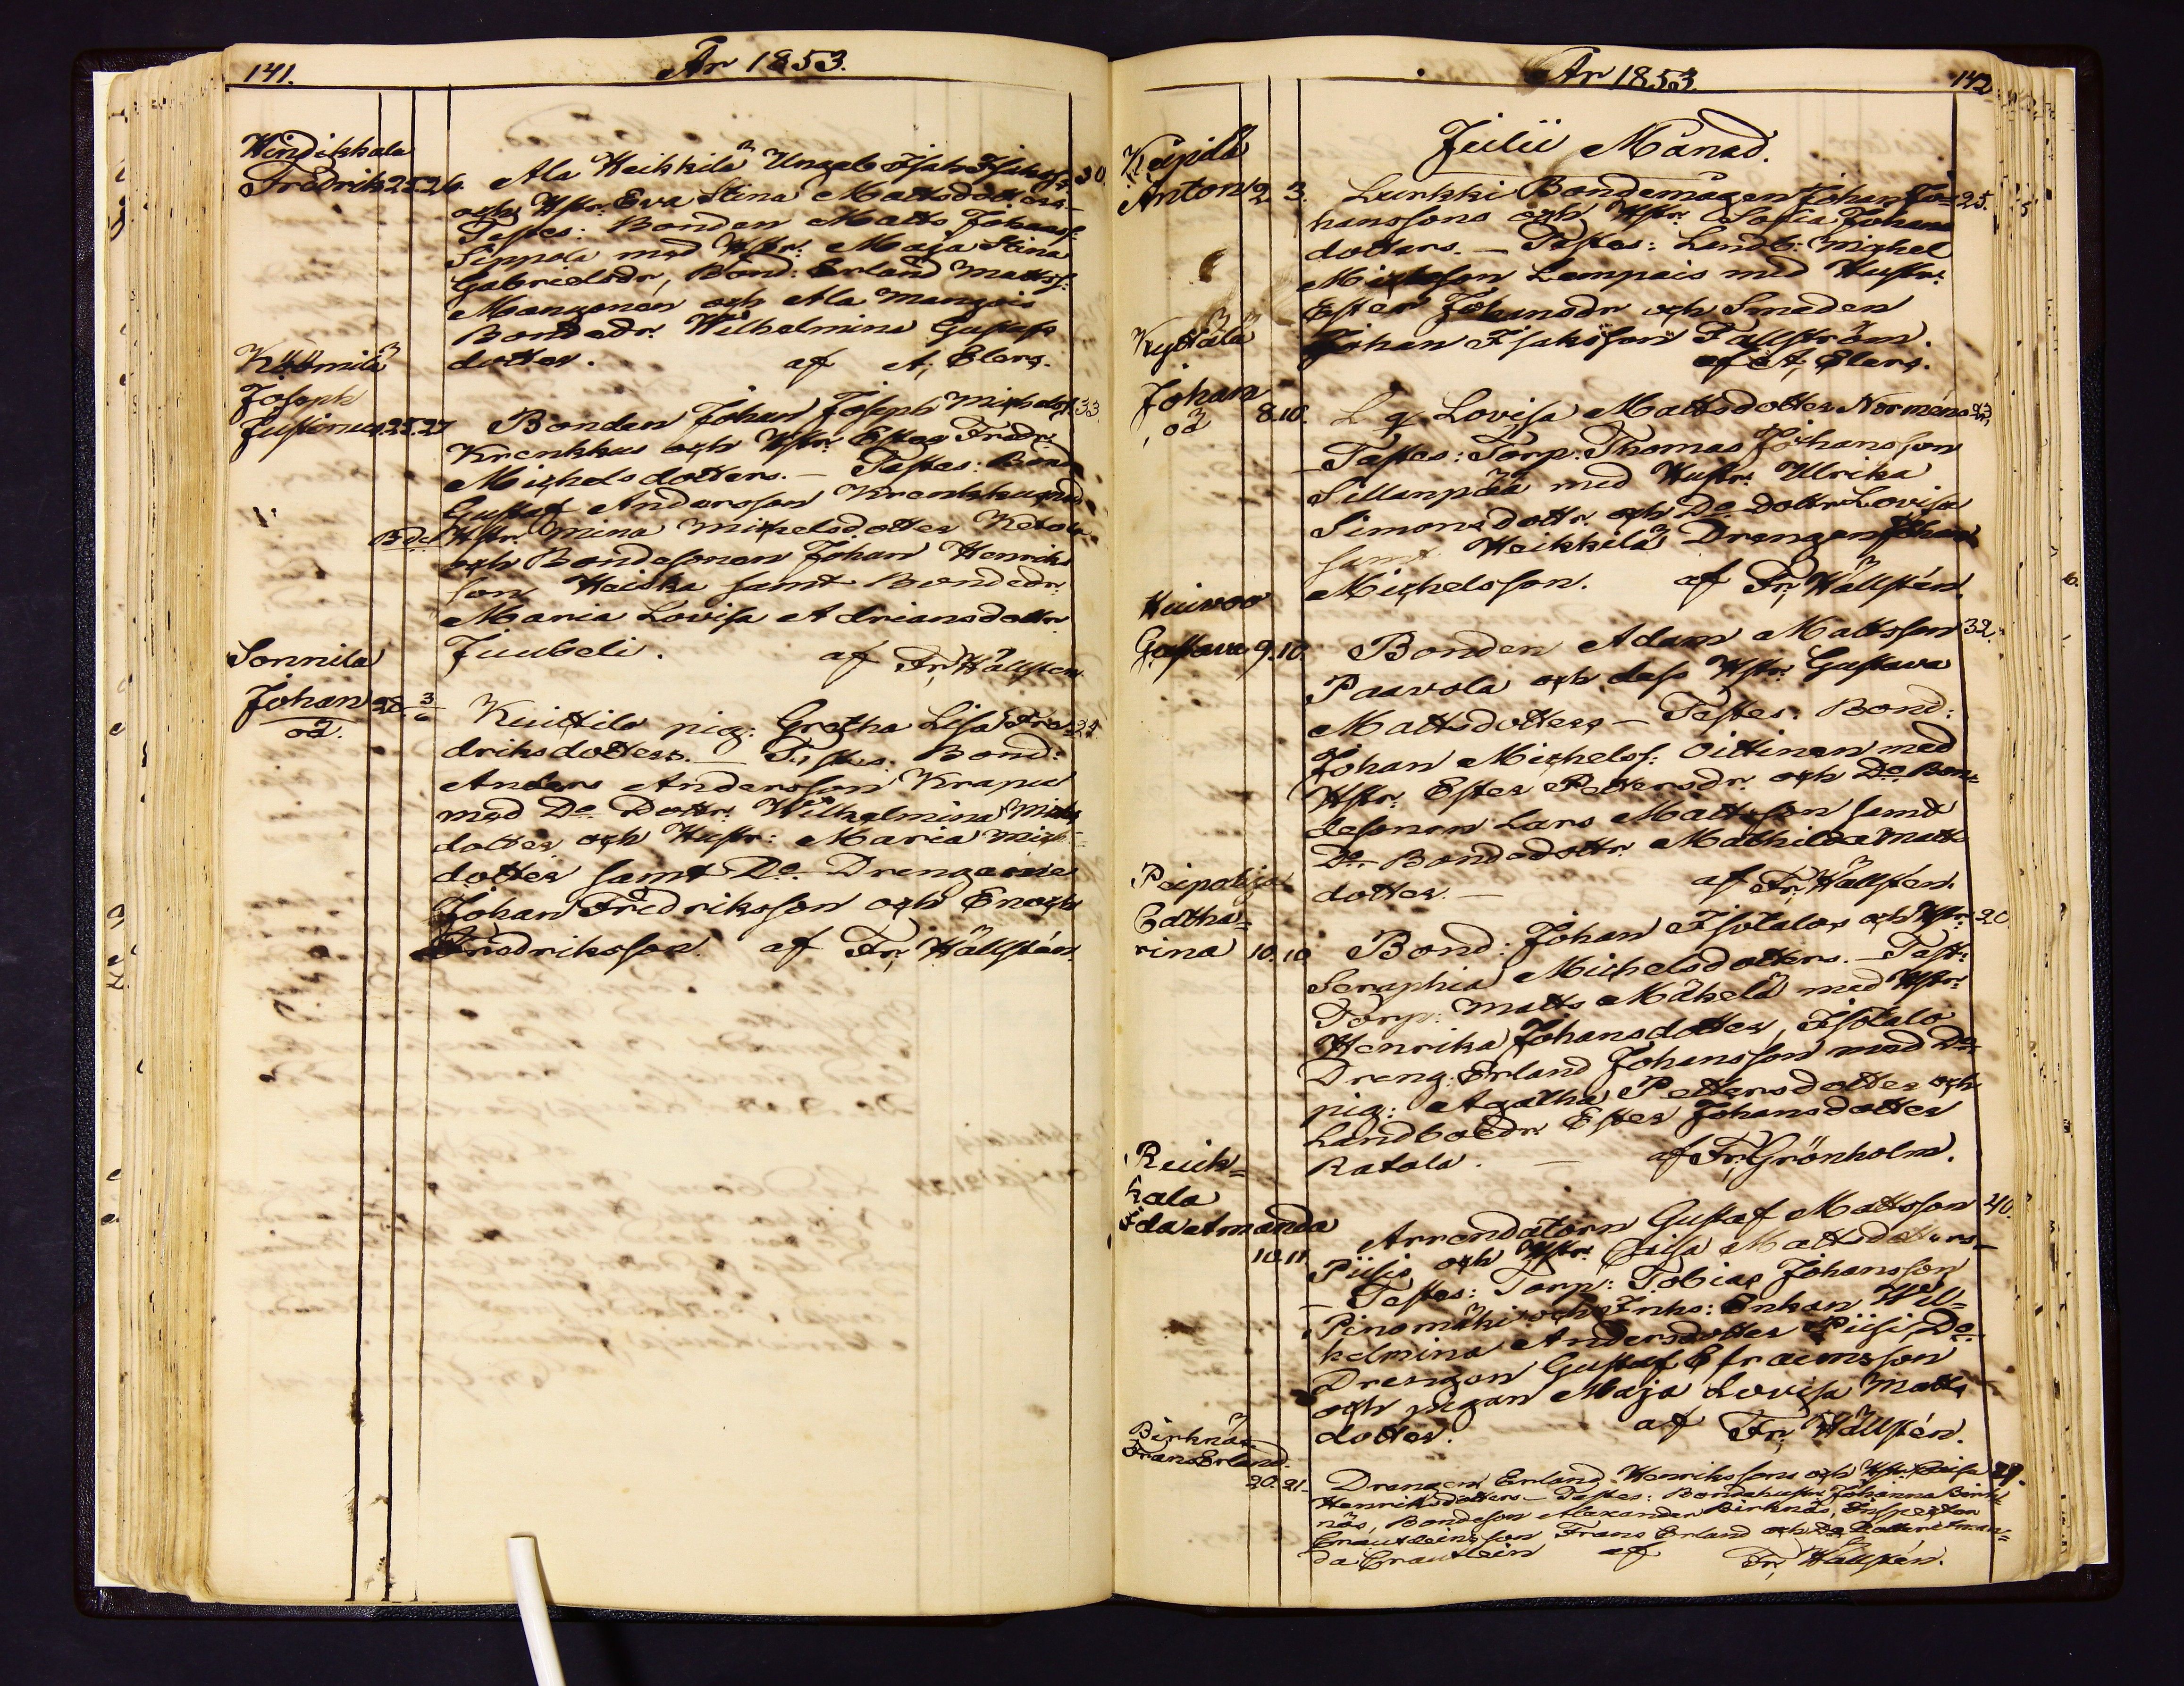 141.
År 1853.
Windikkala
Fredrik 25. 26. Ala Heikkilä Ungab: Isak Isakss: 30.
och Hstr: Eva Stina Mattsdotters.
Testes: Bonden Matts Johanss:
Sippola med Hstr: Maja Stina
Gabrielsdr, Bond: Erland Mattss:
Mangonen och Ala Mangois
Bondedr. Wilhelmina Gustafs
dotter. af A, Elers.
Köömilä
Joseph
Justinus 25. 27 Bonden Johan Joseph Michelss. 33
Krenkkus och Hstr: Ester Fredr.
Michelsdotters. – Testes: Bond
Gustaf Andersson Krenkku med
Hstr. Mina Mickelsdotter Ketola
och Bondesonen Johan Henriks
son Heiska samt Bondedr.
Maria Lovisa Adriansdotter
Juubeli. af Fr, Hällstén
Sonnila
Johan 28. 3/6
oä. Kuittilo pig: Gretha Lisa Fre= 24
driksdotters. – Testes. Bond:
Anders Andersson Krapu
med Do Dottr. Wilhelmina
dotter och Hustr: Maria Mich=
dotter samt Do. Drengarne
Johan Fredriksson och Enoch
Fredriksson. af Fr, Hällstén.
År 1853.
142
Julii Månad.
Keipilä
Anton 2 3. Lurkki Bondemågen Johan Jo= 25.
hanssons och Hstr. Sofia Johans
dotters. – Testes: Landb: Michel
Michelson Lempois med Hustr:
Ester Johansdr och Smeden
Johan Isaksson Fallström.
af A, Elers.
Kyttälä
Johan
oä 8. 10. L q. Lovisa Mattsdotter Normens 23,
Testes: Torp: Thomas Johansson
Sillanpää med Hustr: Ulrika
Simonsdottr. och Do Dottr Lovisa
samt Heikkilä Drengen Johan
Michelsson. af Fr, Hällstén.
Huivoo
Gustava 9. 10 Bonden Adam Mattsson 32.
Paavola och dess Hstr. Gustava
Mattsdotters – Testes: Bond:
Johan Michelss: Oittinen med
Hstr. Ester Pettersdr. och Do Bon=
desonen Lars Mattsson samt
Do. Bondedottr. Mathilda Matts
dotter. – af Fr, Hällstén.
Peipohja
Catha=
rina 10. 10 Bond: Johan Isotalos och Hstr. 20
Seraphia Michelsdotters. – Test:
Torp: Matts Mäkelä med Hstr:
Henrika Johansdotter, Isotalo
Dreng: Erland Johansson med Do
pig: Agatha Pettersdotter och
Landboedr. Ester Johansdotter
Ratala. – af Fr, Grönholm.
Reiik=
kala
Ida Amanda
10. 11. Arrendatorn Gustaf Mattsson 40.
Piisis och Hstr. Caisa Mattsdotters
– Testes: Torp: Tobias Johansson
Pinomäki och Inhs: Enkan Wil=
helmina Andersdotter Piisi, Do
Drengen Gustaf Efraimsson
och pigan Maja Lovisa Matts
dotter. af Fr, Hällstén.
Birknäs
Frans Erland.
20. 21. Drengen Erland Henrikssons och Hstr. Caisa 29.
Henriksdotters – Testes: Bondehustr. Johanna Birk=
näs, Bondeson Alexander Birknäs, Inspektor
Grautleins son Frans Erland och Do Dotter Aman=
da Grautlein af Fr, Hällstén.